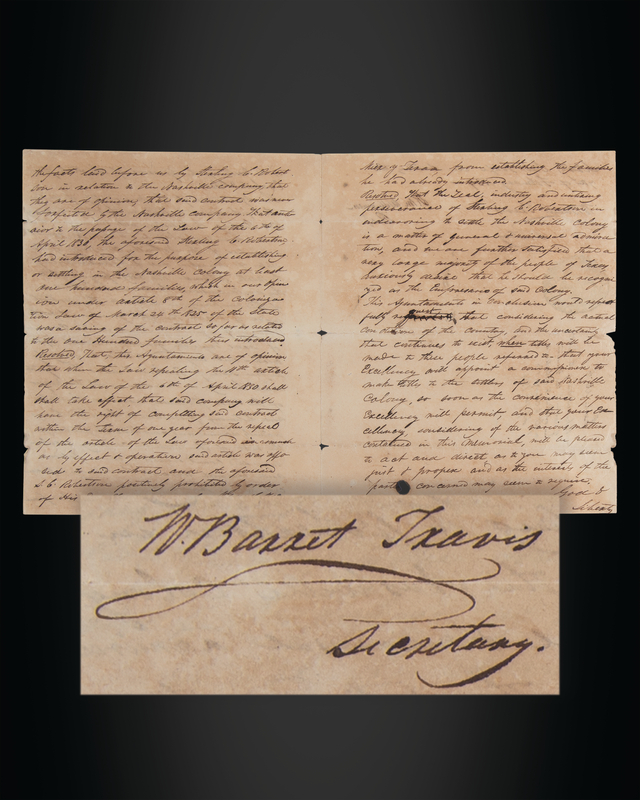 the facts laid before us by Sterling C Robert
son in relation to the Nashville company that
they are of opinion, that said contract was
forfeited by the Nashville Company that ante
rior to the passage of the Law of the 6th of
April 1830, the aforesaid Sterling C Robertson
had introduced for the purpose of establishing
or settling in the Nashville Colony at least
one hundred families, which in our opin
ion under article 8th of the Coloniza
tion Law of March 24th 1825 of the State
was a saving of the contract so far as related
to the One Hundred families thus introduced
Resolved, That, this Ayuntamiento are of opinion
that when the Law repealing the 11th article
of the Law of the 6th of April 1830 shall
shall take effect that said company will
have the right of completing said contract
within the term of one year from the repeal
of the article of the Law aforesaid in
as by effect & operation said article was
to said contract and the aforesaid
S C Robertson positively prohibited by order
of His
of Texas from establishing the families
he had already introduced
Resolved, That the Zeal, industry and untiring
perseverance of Sterling C Robertson in
endeavoring to settle the Nashville Colony
is a matter of general & universal admira
tion, and we are further satisfied that a
very large majority of the people of Texas
anxiously desire that he should be recogni
zed as the Empresario of said Colony.
This Ayuntamiento in conclusion would respect
fully request that considering the actual
condition of the Country, and the uncertainty
that continues to exist when titles will be
made to these people referred to that your
Excellency will appoint a commissioner to
make titles to the settlers of said Nashville
Colony, so soon as the convenience of your
Excellency will permit, and that your Ex
cellency considering of the various matters
contained in this Memorial, will be pleased
to act and direct as to you may seem
just & proper and as the interests of the
parties concerned may seem to require.
God &
Liberty
W. Barret Travis
Secretary.